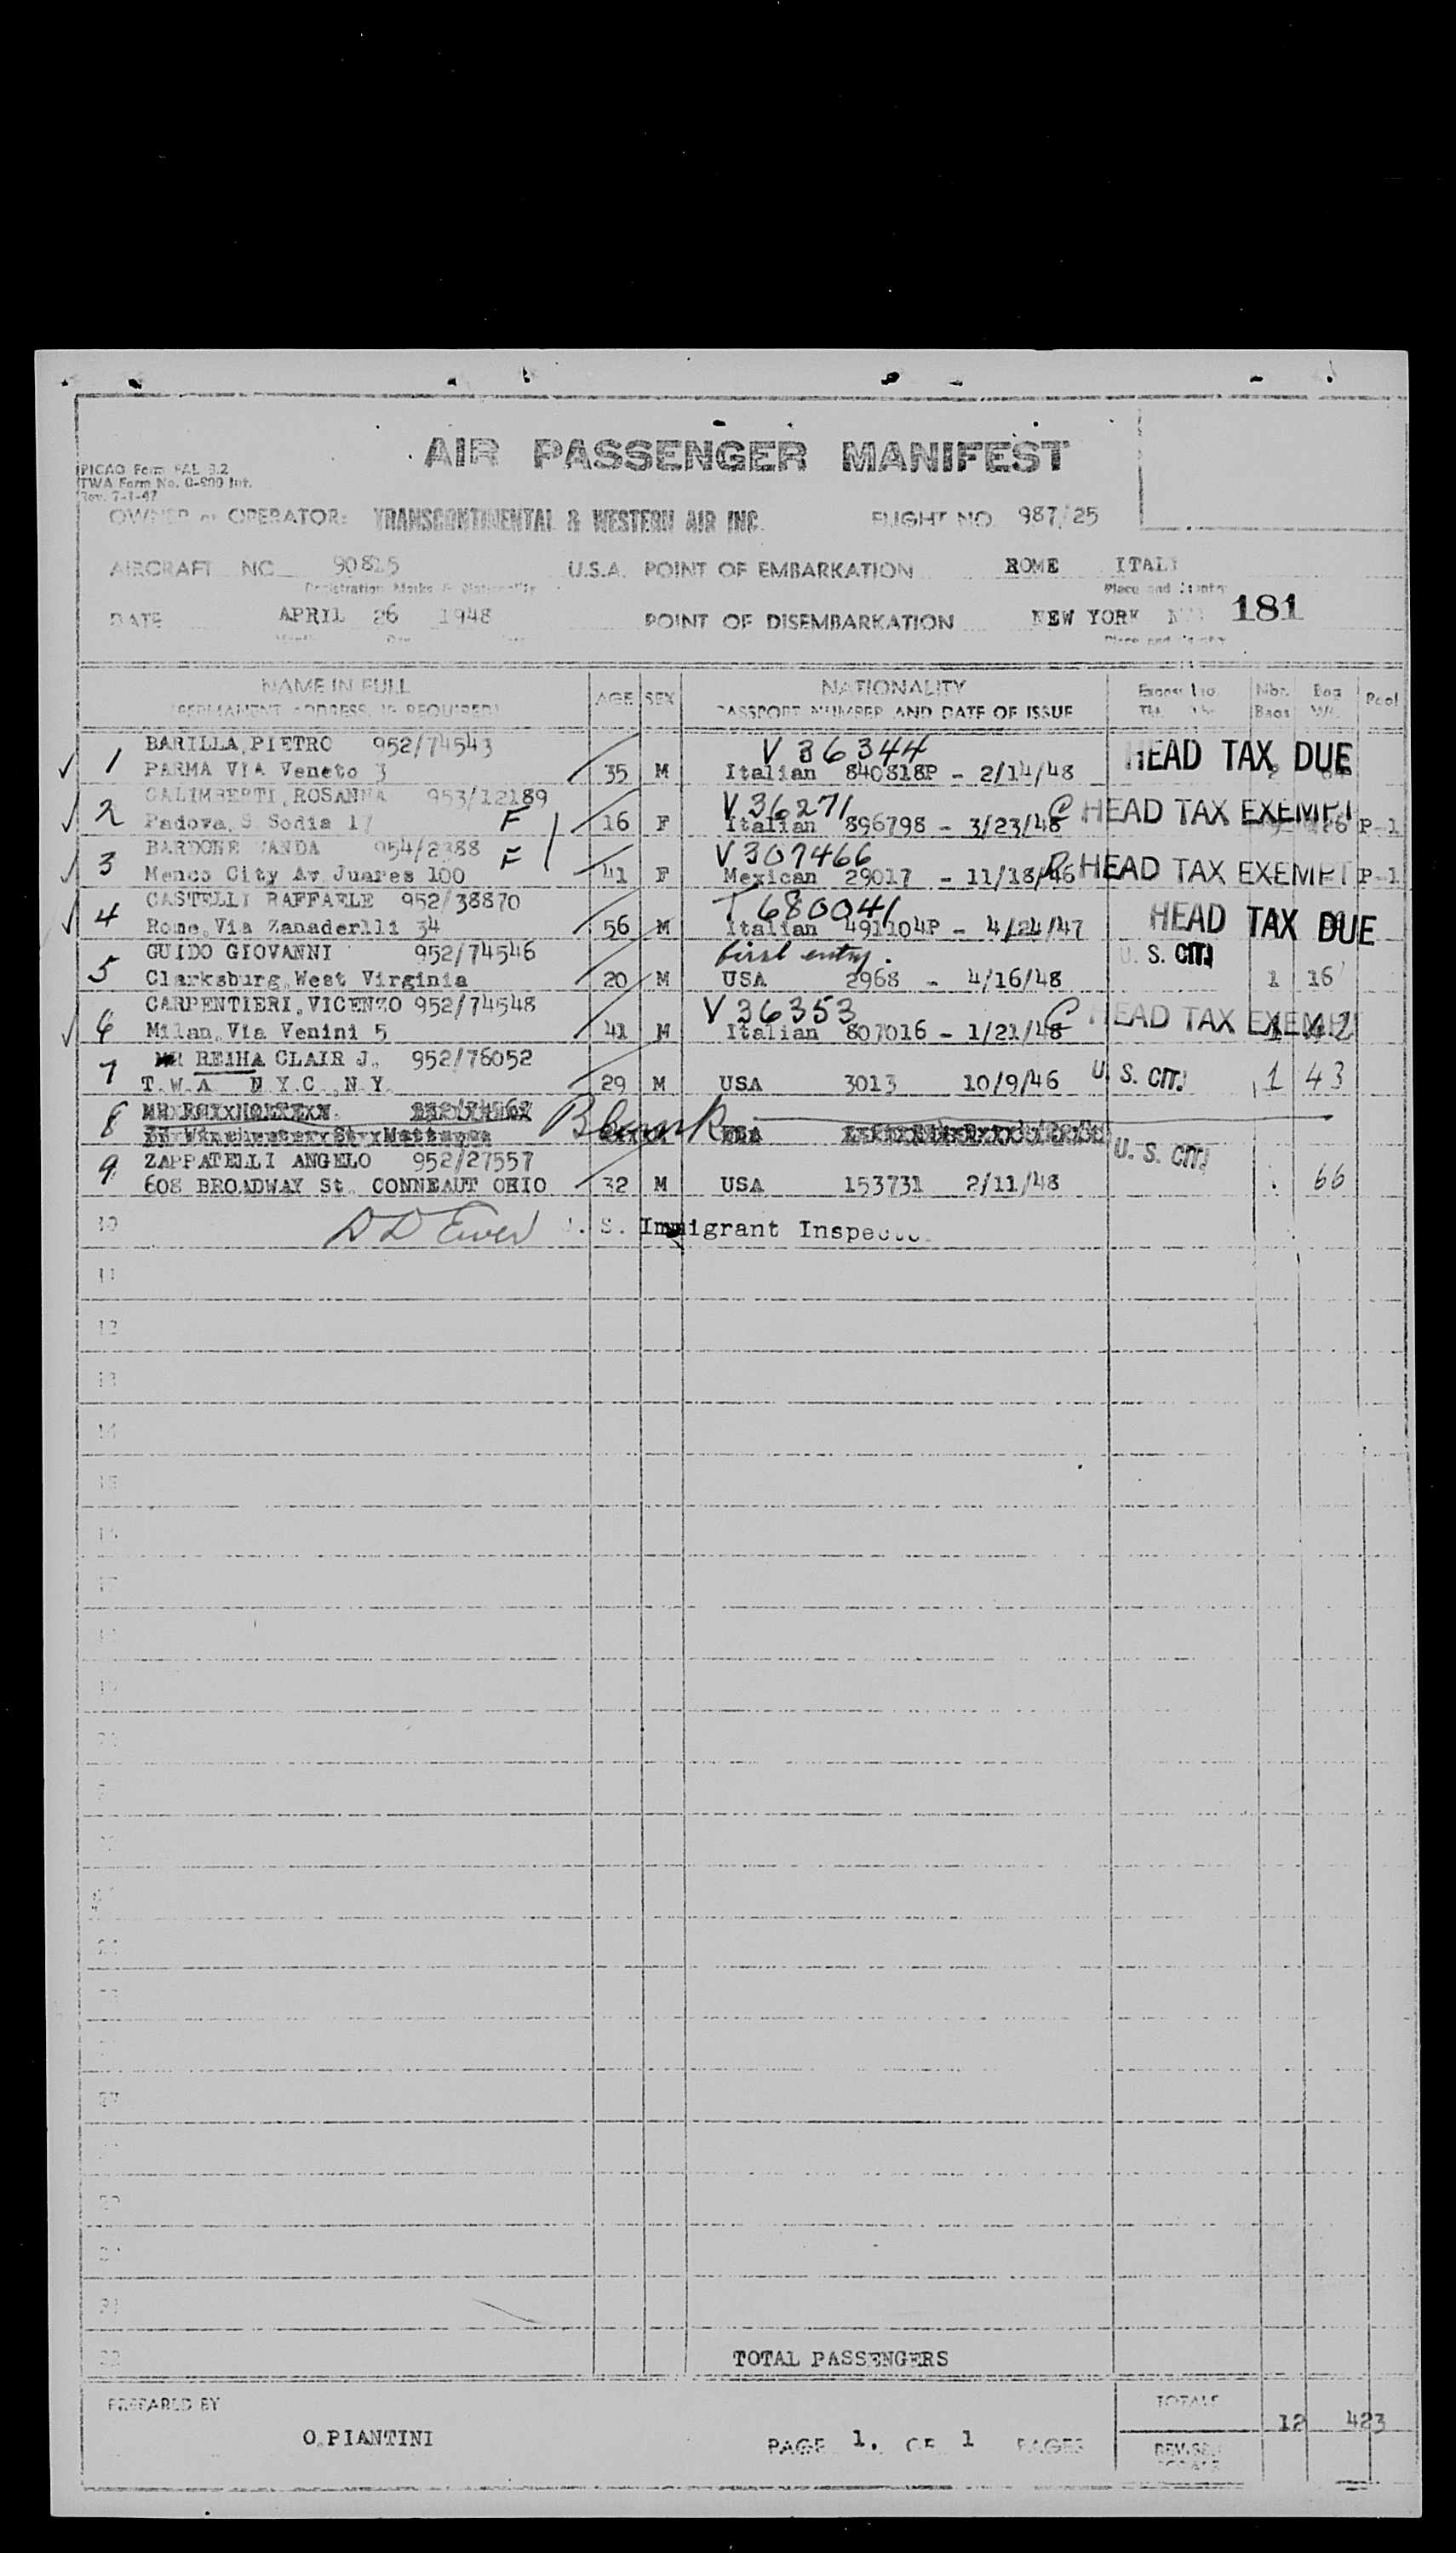 AIR PASSENGER MANIFEST
PICAO Form FAL 3.2
TWA Form No. 0-900 Int.
Rev. 7-1-47
OWNER or OPERATOR: TRANSCONTINENTAL & WESTERN AIR INC. FLIGHT NO. 987/25
AIRCRAFT NO. 90815 U.S.A. POINT OF EMBARKATION ROME ITALY
Registration Marks & Nationality Place and Country
DATE APRIL 26 1948 POINT OF DISEMBARKATION NEW YORK 181
Month Day Place and Country
NAME IN FULL AGE SEX NATIONALITY Nbr. Bags Bag Wt. Pool
(PERMANENT ADDRESS, IF REQUIRED) PASSPORT NUMBER AND DATE OF ISSUE
1 BARILLA, PIETRO 952/74543 V 36344 HEAD TAX DUE
PARMA VIA Veneto 3 35 M Italian 840818P - 2/14/48
2 GALIMBERTI, ROSANNA 953/12189 V 36271 C HEAD TAX EXEMPT
Padova, S. Sodia 17 F 16 F Italian 896798 - 3/23/48 P-1
3 BARDONE VANDA 954/2388 F V 307466 HEAD TAX EXEMPT
Menco City Av. Juares 100 41 F Mexican 29017 - 11/18/46 P-1
4 CASTELLI RAFFAELE 952/38870 T 680041 HEAD TAX DUE
Rome, Via Zanaderlli 34 56 M Italian 491104P - 4/24/47
5 GUIDO GIOVANNI 952/74546 first entry. U. S. CIT.
Clarksburg, West Virginia 20 M USA 2968 - 4/16/48 1 16
6 CARPENTIERI, VICENZO 952/74548 V 36353 C HEAD TAX EXEMPT
Milan, Via Venini 5 41 M Italian 807016 - 1/21/48 1 42
7 MR REIHA CLAIR J. 952/76052 U. S. CIT.
T.W.A. N.Y.C., N.Y. 29 M USA 3013 10/9/46 1 43
8 Blank USA
9 ZAPPATELLI ANGELO 952/27557 U. S. CIT.
608 BROADWAY St. CONNEAUT OHIO 32 M USA 153731 2/11/48 66
10 U. S. Immigrant Inspector
11
12
13
14
15
16
17
27
31
TOTAL PASSENGERS
PREPARED BY TOTALS 12 423
O.PIANTINI PAGE 1. OF 1 PAGES
REVISED TOTALS